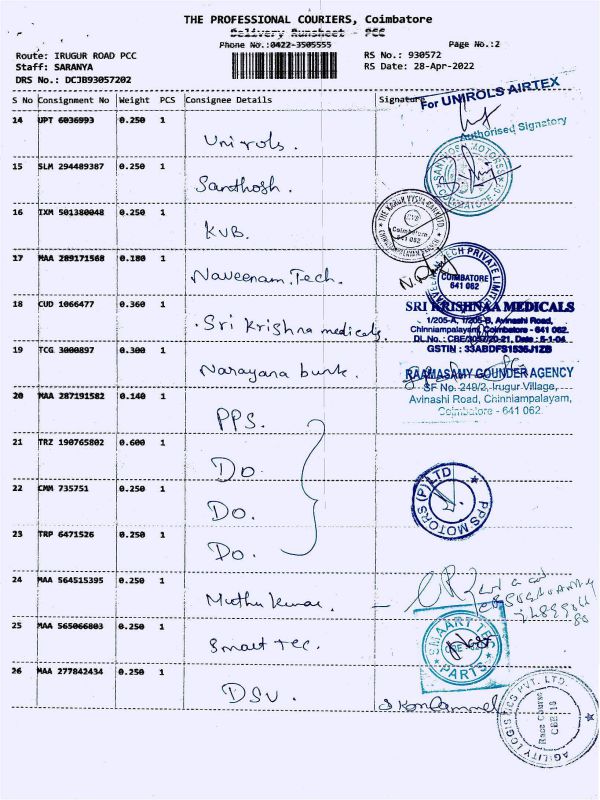 THE PROFESSIONAL COURIERS, Coimbatore
Delivery Runsheet - PCC
Phone No.:0422-3505555
Page No.:2
Route: IRUGUR ROAD PCC
RS No.: 930572
Staff: SARANYA
RS Date: 28-Apr-2022
DRS No.: DCJB93057202
S No Consignment No Weight PCS Consignee Details Signature
For UNIROLS AIRTEX
Authorised Signatory
14 UPT 6036993 0.250 1
Unirols.
15 SLM 294489387 0.250 1
Santhosh.
SANTHOSH MOTORS
COIMBATORE
16 IXM 501380048 0.250 1
KVB.
THE KARUR VYSYA BANK LTD.
Coimbatore
641 062
CHINNIAMPALAYAM BRANCH
17 MAA 289171568 0.180 1
Naveenam.Tech.
TECH PRIVATE LIMITED
COIMBATORE
641 062
18 CUD 1066477 0.360 1
Sri Krishna medicals.
SRI KRISHNAA MEDICALS
1/205-A, 1/205-B, Avinashi Road,
Chinniampalayam, Coimbatore - 641 062.
DL No.: CBE/3057/20-21, Date : 5-1-04
GSTIN : 33ABDFS1535J1ZB
19 TCG 3000897 0.300 1
Narayana bunk.
RAAMASAMY GOUNDER AGENCY
SF No. 249/2, Irugur Village,
Avinashi Road, Chinniampalayam,
Coimbatore - 641 062.
20 MAA 287191582 0.140 1
PPS.
21 TRZ 190765802 0.600 1
Do.
22 CMM 735751 0.250 1
Do.
PPS MOTORS (P) LTD
23 TRP 6471526 0.250 1
Do.
24 MAA 564515395 0.250 1
Muthu Kumar
25 MAA 565066803 0.250 1
Smart tec.
SMAART TEC
PARTS
26 MAA 277842434 0.250 1
DSV.
AGILITY LOGISTICS PVT. LTD.
Race Course
CBE-18